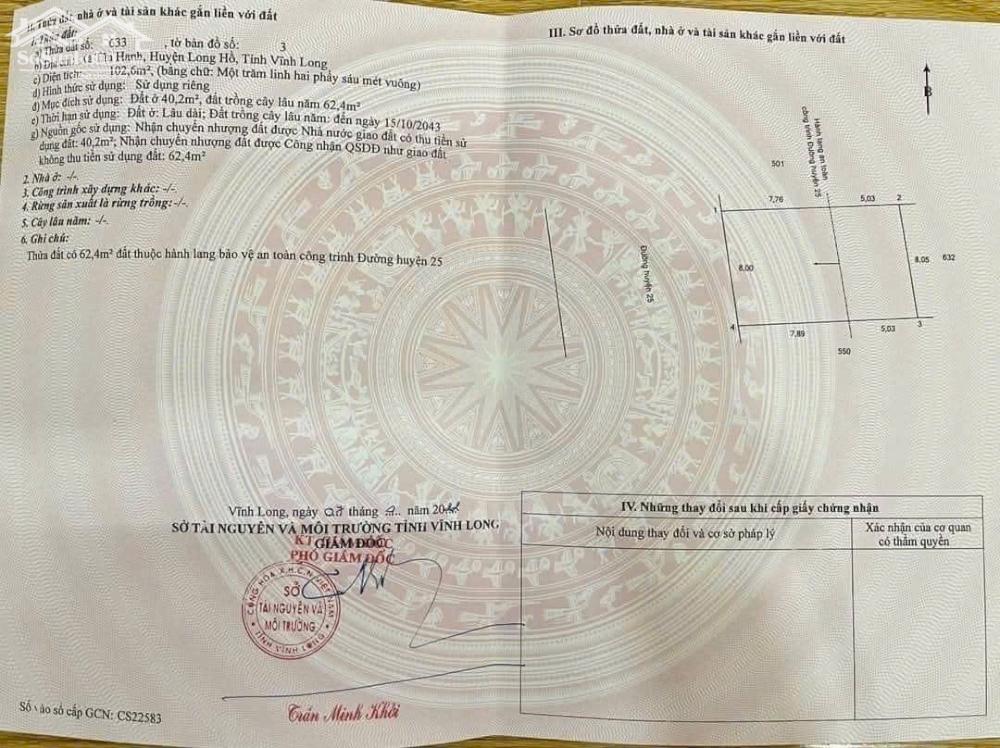 II. Thửa đất, nhà ở và tài sản khác gắn liền với đất
1. Thửa đất:
a) Thửa đất số: 633 , tờ bản đồ số: 3
Hạnh, Huyện Long Hồ, Tỉnh Vĩnh Long
c) Diện tích: 102,6m², (bằng chữ: Một trăm linh hai phẩy sáu mét vuông)
d) Hình thức sử dụng: Sử dụng riêng
đ) Mục đích sử dụng: Đất ở 40,2m², đất trồng cây lâu năm 62,4m²
e) Thời hạn sử dụng: Đất ở: Lâu dài; Đất trồng cây lâu năm: đến ngày 15/10/2043
g) Nguồn gốc sử dụng: Nhận chuyển nhượng đất được Nhà nước giao đất có thu tiền sử
dụng đất: 40,2m²; Nhận chuyển nhượng đất được Công nhận QSDĐ như giao đất
không thu tiền sử dụng đất: 62,4m²
2. Nhà ở: -/-
3. Công trình xây dựng khác: -/-.
4. Rừng sản xuất là rừng trồng: -/-.
5. Cây lâu năm: -/-
6. Ghi chú:
Thửa đất có 62,4m² đất thuộc hành lang bảo vệ an toàn công trình Đường huyện 25
Vĩnh Long, ngày tháng năm
SỞ TÀI NGUYÊN VÀ MÔI TRƯỜNG TỈNH VĨNH LONG
KT GIÁM ĐỐC
PHÓ GIÁM ĐỐC
SỞ
TÀI NGUYÊN VÀ
MÔI TRƯỜNG
TỈNH VĨNH LONG
Trần Minh Khôi
Số vào sổ cấp GCN: CS22583
III. Sơ đồ thửa đất, nhà ở và tài sản khác gắn liền với đất
B
Hành lang an toàn
công trình Đường huyện 25
501
1
7,76
5,03
2
Đường huyện 25
8,00
8,05
632
4
7,89
5,03
3
550
IV. Những thay đổi sau khi cấp giấy chứng nhận
Nội dung thay đổi và cơ sở pháp lý
Xác nhận của cơ quan
có thẩm quyền